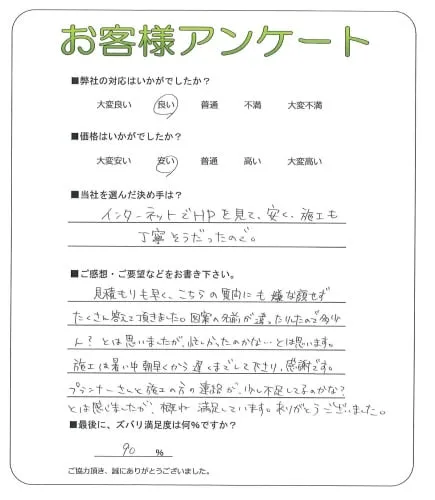 お客様アンケート
■弊社の対応はいかがでしたか？
大変良い　良い　普通　不満　大変不満
■価格はいかがでしたか？
大変安い　安い　普通　高い　大変高い
■当社を選んだ決め手は？
インターネットでHPを見て、安く、施工も
丁寧そうだったので。
■ご感想・ご要望などをお書き下さい。
見積もりも早く、こちらの質問にも嫌な顔せず
たくさん答えて頂きました。図案の名前が違ったりしたので多少
ん？とは思いましたが、忙しかったのかな…とは思います。
施工は暑い中朝早くから遅くまでして下さり、感謝です。
プランナーさんと施工の方の連絡が、少し不足してるのかな？
とは感じましたが、概ね満足しています。ありがとうございました。
■最後に、ズバリ満足度は何%ですか？
90　％
ご協力頂き、誠にありがとうございました。